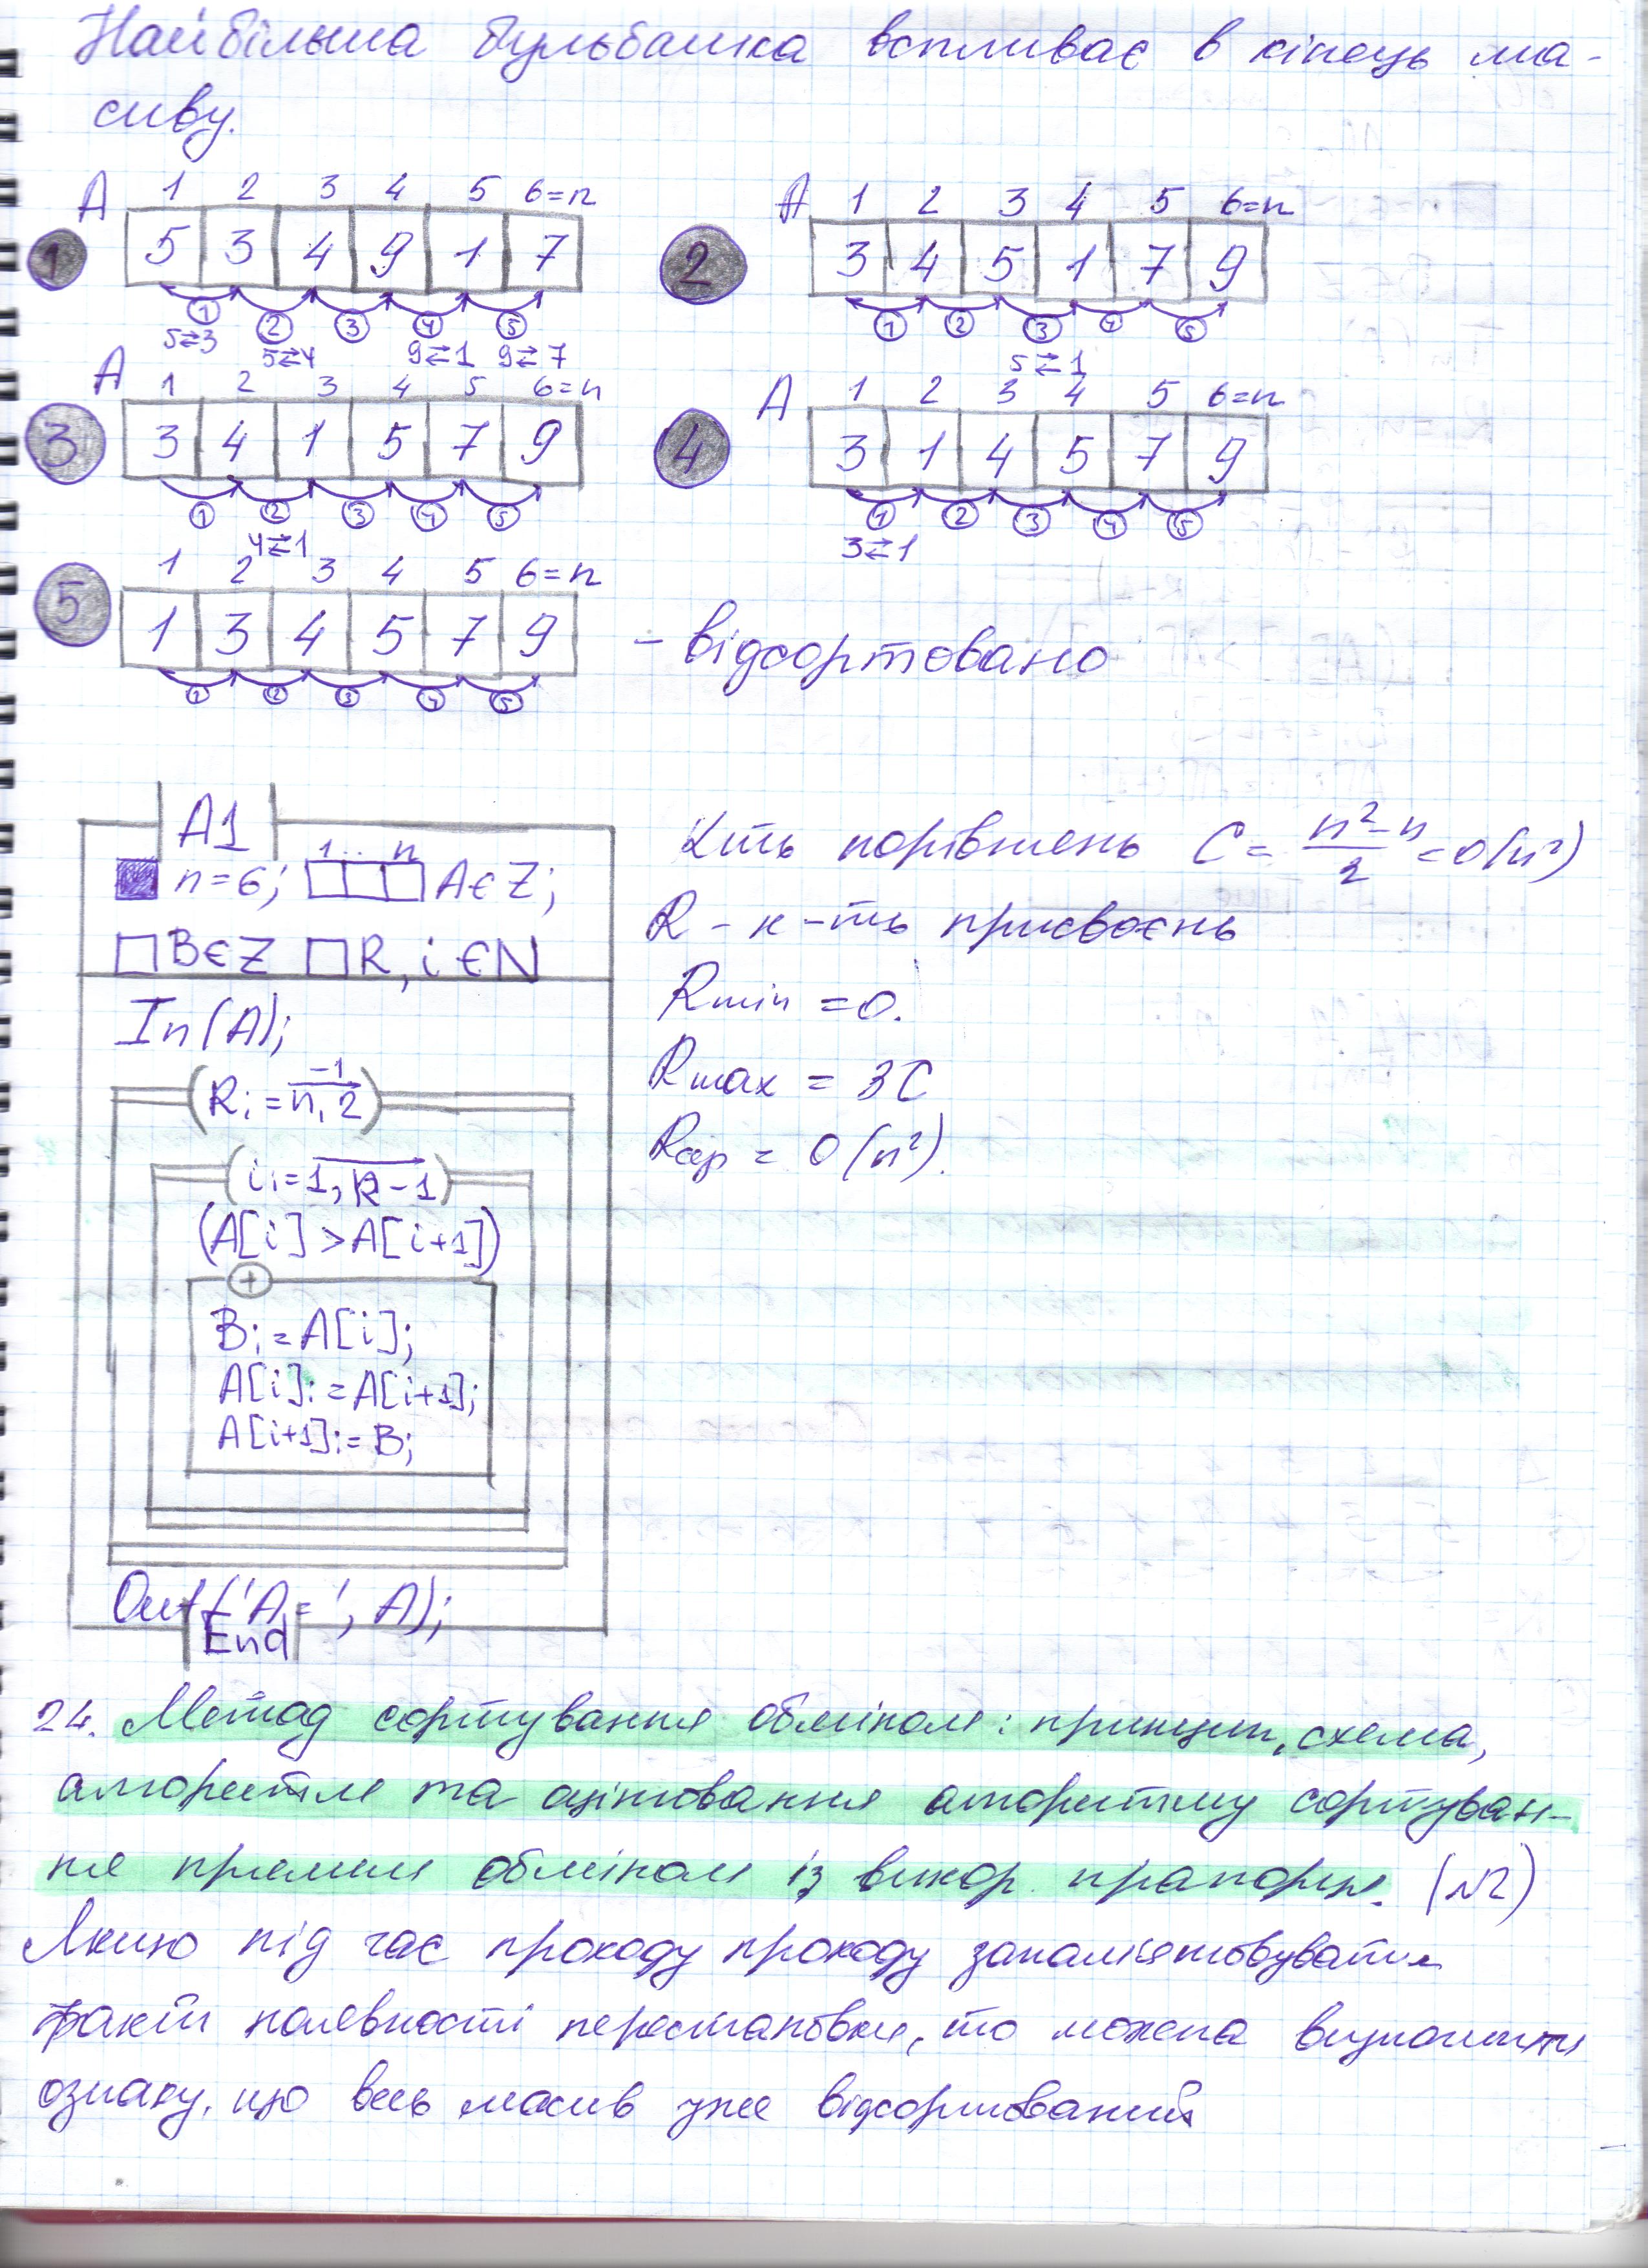 Найбільша бульбашка вспливає в кінець ма-
сиву.
A 1 2 3 4 5 6=n
1 5 3 4 9 1 7
1 2 3 4 5
5⇄3 5⇄4 9⇄1 9⇄7
A 1 2 3 4 5 6=n
2 3 4 5 1 7 9
1 2 3 4 5
5⇄1
A 1 2 3 4 5 6=n
3 3 4 1 5 7 9
1 2 3 4 5
4⇄1
A 1 2 3 4 5 6=n
4 3 1 4 5 7 9
1 2 3 4 5
3⇄1
1 2 3 4 5 6=n
5 1 3 4 5 7 9
1 2 3 4 5
- відсортовано
A1
1.. n
n=6; A∈Z;
B∈Z R, i ∈N
In(A);
(R:=n,2) -1
(i:=1, R-1)
(A[i]>A[i+1])
+
B:=A[i];
A[i]:=A[i+1];
A[i+1]:=B;
Out('A=', A);
End
К-ть порівнень C = (n²-n)/2 = O(n²)
R - к-ть присвоєнь
Rmin = 0.
Rmax = 3C
Rср = O(n²).
24. Метод сортування обміном: принцип, схема,
алгоритм та оцінювання алгоритму сортуван-
ня прямим обміном із викор. прапорця. (№2)
Якщо під час проходу проходу запам'ятовувати
факт наявності перестановки, то можна визначити
ознаку, що весь масив уже відсортований